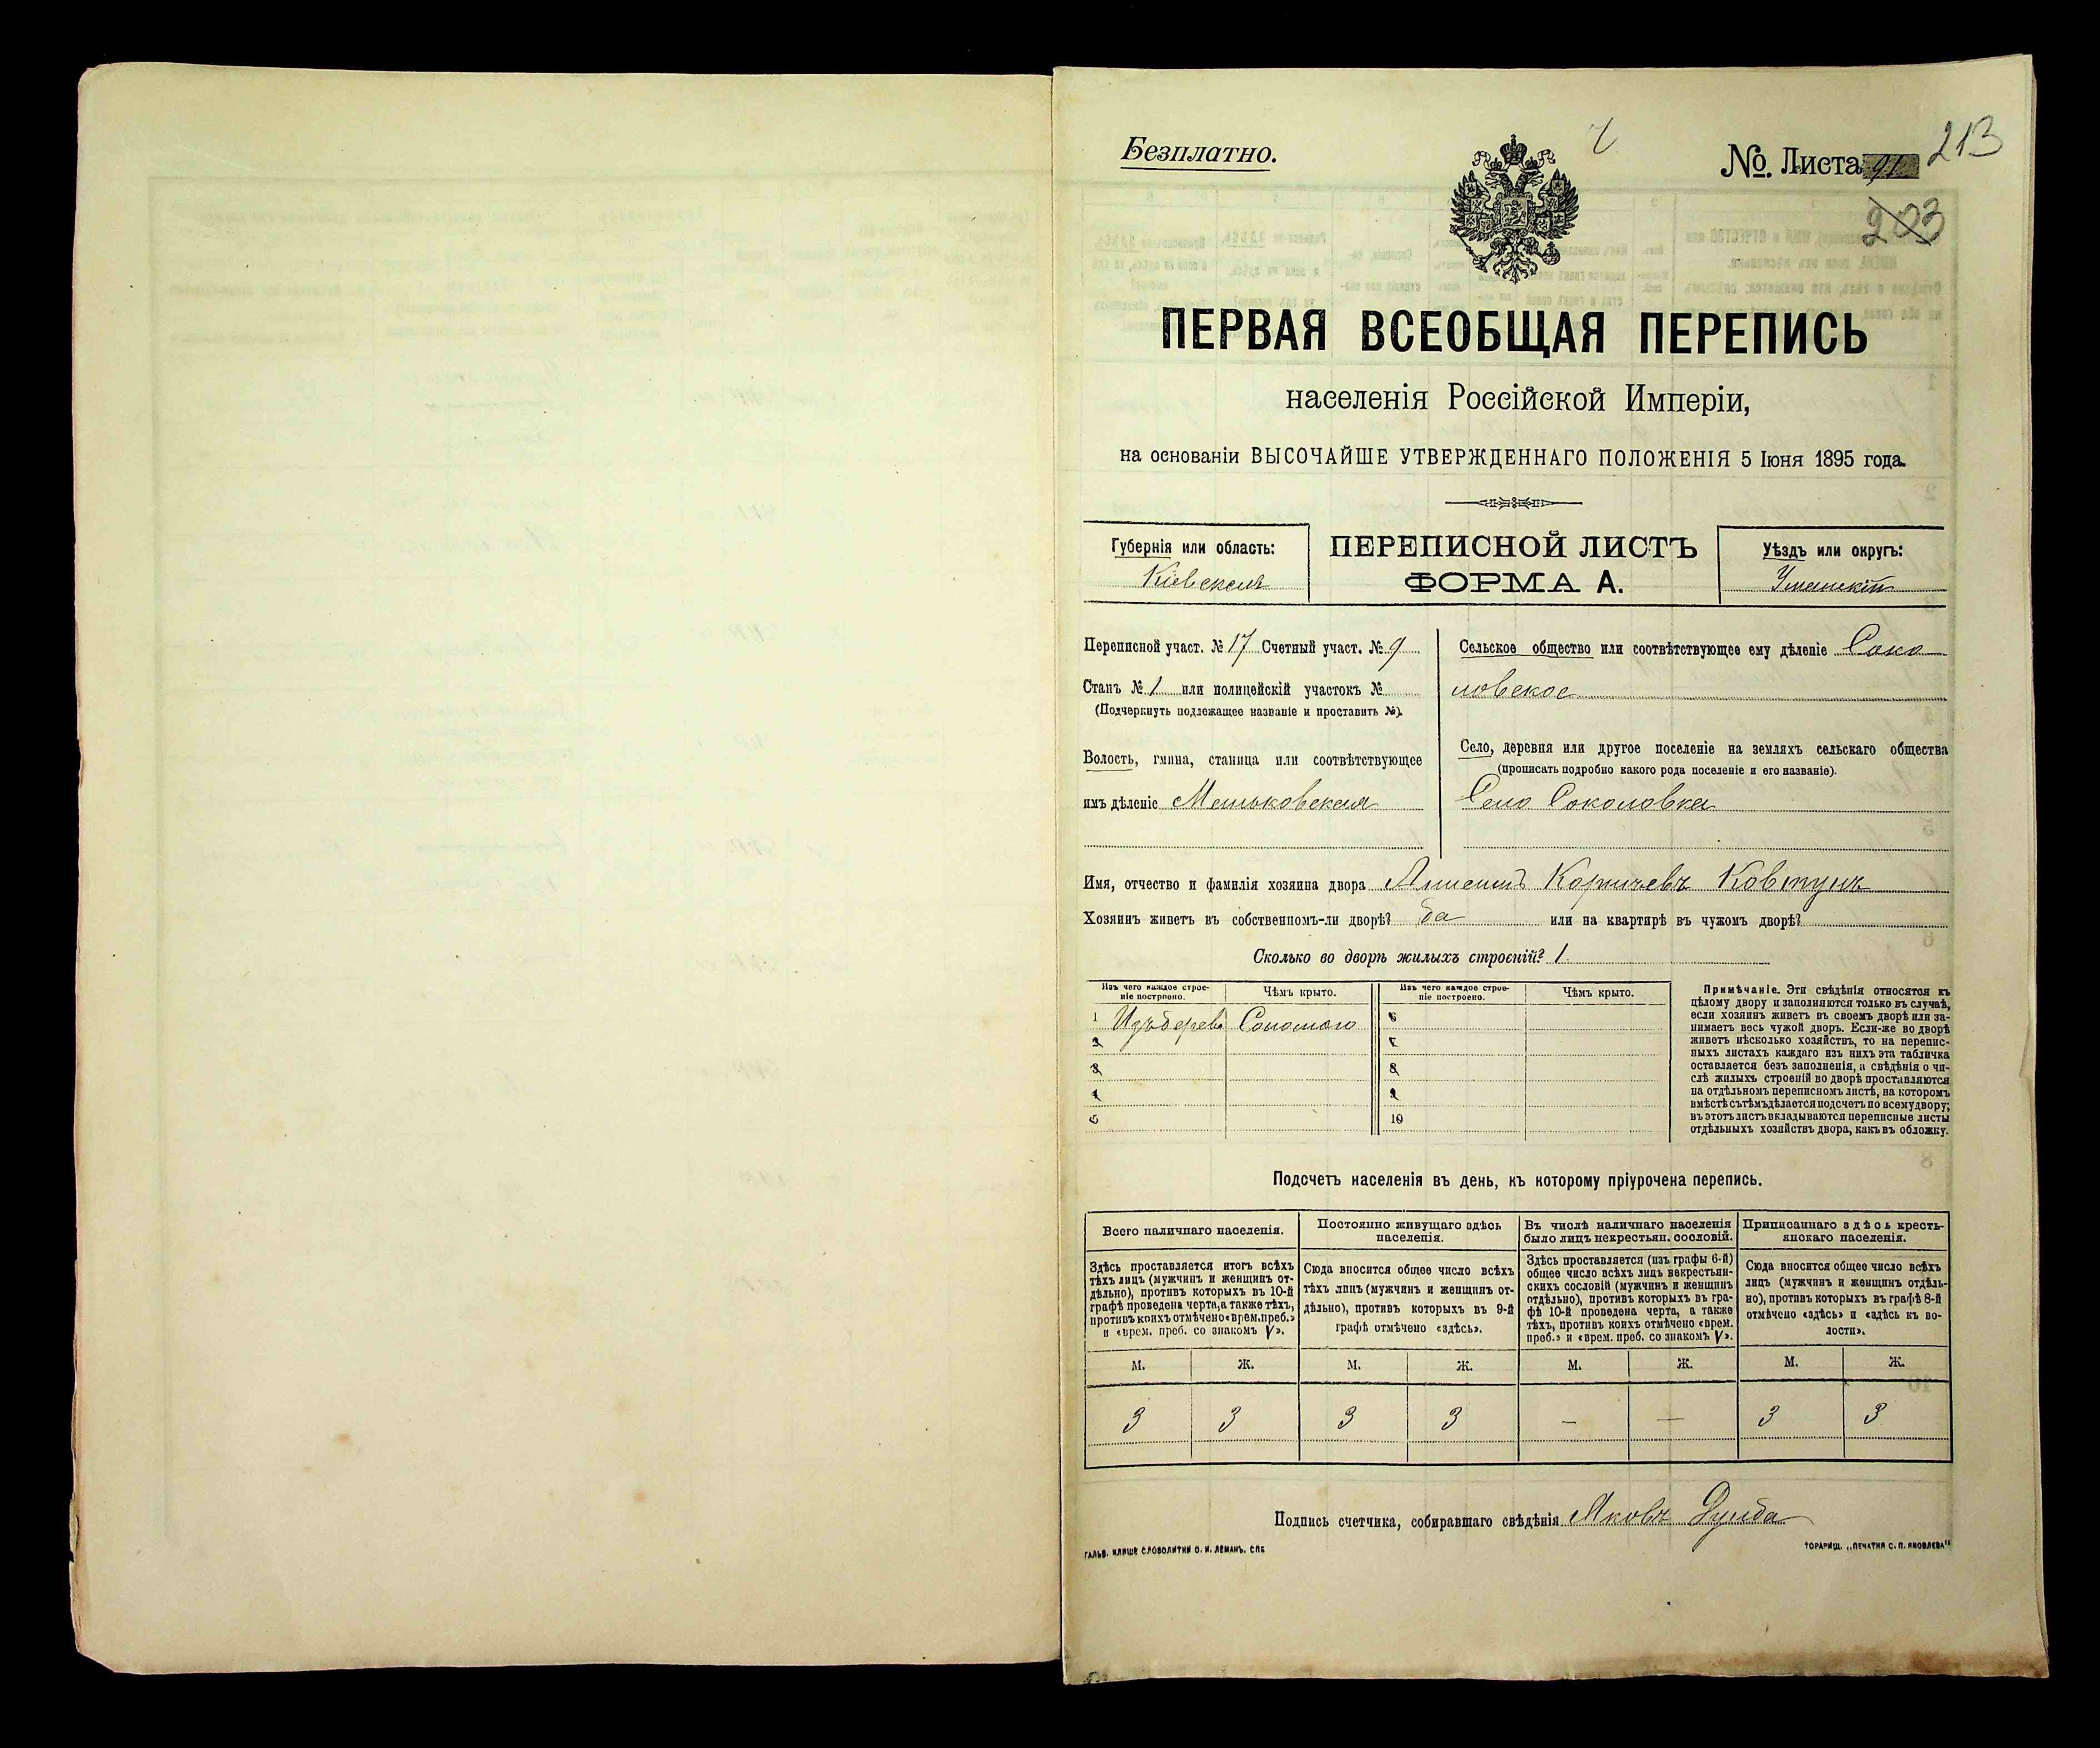 Безплатно.
№. Листа 91
213
203
ПЕРВАЯ ВСЕОБЩАЯ ПЕРЕПИСЬ
населенія Россійской Имперіи,
на основаніи ВЫСОЧАЙШЕ УТВЕРЖДЕННАГО ПОЛОЖЕНІЯ 5 Іюня 1895 года.
Губернія или область:
Кіевская
ПЕРЕПИСНОЙ ЛИСТЪ
ФОРМА А.
Уѣздъ или округъ:
Уманскій
Переписной участ. № 17 Счетный участ. № 9
Станъ № 1 или полицейскій участокъ №
(Подчеркнуть подлежащее названіе и проставить №).
Волость, гмина, станица или соотвѣтствующее
имъ дѣленіе Маньковская
Сельское общество или соотвѣтствующее ему дѣленіе Соко
ловское
Село, деревня или другое поселеніе на земляхъ сельскаго общества
(прописать подробно какого рода поселеніе и его названіе).
Село Соколовка
Имя, отчество и фамилія хозяина двора Корнѣевъ Ковтунъ
Хозяинъ живетъ въ собственномъ-ли дворѣ? да или на квартирѣ въ чужомъ дворѣ?
Сколько во дворѣ жилыхъ строеній? 1
Изъ чего каждое строе-
ніе построено.
Чѣмъ крыто.
Изъ чего каждое строе-
ніе построено.
Чѣмъ крыто.
1 Изъ дерева Соломою 6
2 7
3 8
4 9
5 10
Примѣчаніе. Эти свѣдѣнія относятся къ
цѣлому двору и заполняются только въ случаѣ,
если хозяинъ живетъ въ своемъ дворѣ или за-
нимаетъ весь чужой дворъ. Если-же во дворѣ
живетъ нѣсколько хозяйствъ, то на перепис-
ныхъ листахъ каждаго изъ нихъ эта табличка
оставляется безъ заполненія, а свѣдѣнія о чи-
слѣ жилыхъ строеній во дворѣ проставляются
на отдѣльномъ переписномъ листѣ, на которомъ
вмѣстѣ съ тѣмъ дѣлается подсчетъ по всему двору;
въ этотъ листъ вкладываются переписные листы
отдѣльныхъ хозяйствъ двора, какъ въ обложку.
Подсчетъ населенія въ день, къ которому пріурочена перепись.
Всего наличнаго населенія.
Здѣсь проставляется итогъ всѣхъ
тѣхъ лицъ (мужчинъ и женщинъ от-
дѣльно), противъ которыхъ въ 10-й
графѣ проведена черта, а также тѣхъ,
противъ коихъ отмѣчено «врем. преб.»
и «врем. преб. со знакомъ V».
Постоянно живущаго здѣсь
населенія.
Сюда вносится общее число всѣхъ
тѣхъ лицъ (мужчинъ и женщинъ от-
дѣльно), противъ которыхъ въ 9-й
графѣ отмѣчено «здѣсь».
Въ числѣ наличнаго населенія
было лицъ некрестьян. сословій.
Здѣсь проставляется (изъ графы 6-й)
общее число всѣхъ лицъ некрестьян-
скихъ сословій (мужчинъ и женщинъ
отдѣльно), противъ которыхъ въ гра-
фѣ 10-й проведена черта, а также
тѣхъ, противъ коихъ отмѣчено «врем.
преб.» и «врем. преб. со знакомъ V».
Приписаннаго здѣсь кресть-
янскаго населенія.
Сюда вносится общее число всѣхъ
лицъ (мужчинъ и женщинъ отдѣль-
но), противъ которыхъ въ графѣ 8-й
отмѣчено «здѣсь» и «здѣсь въ во-
лости».
М. Ж. М. Ж. М. Ж. М. Ж.
3 3 3 3 — — 3 3
Подпись счетчика, собиравшаго свѣдѣнія Яковъ
ГАЛЬВ. КЛИШЕ СЛОВОЛИТНИ О. И. ЛЕМАНЪ, СПБ
ТОВАРИЩ. „ПЕЧАТНЯ С. П. ЯКОВЛЕВА"